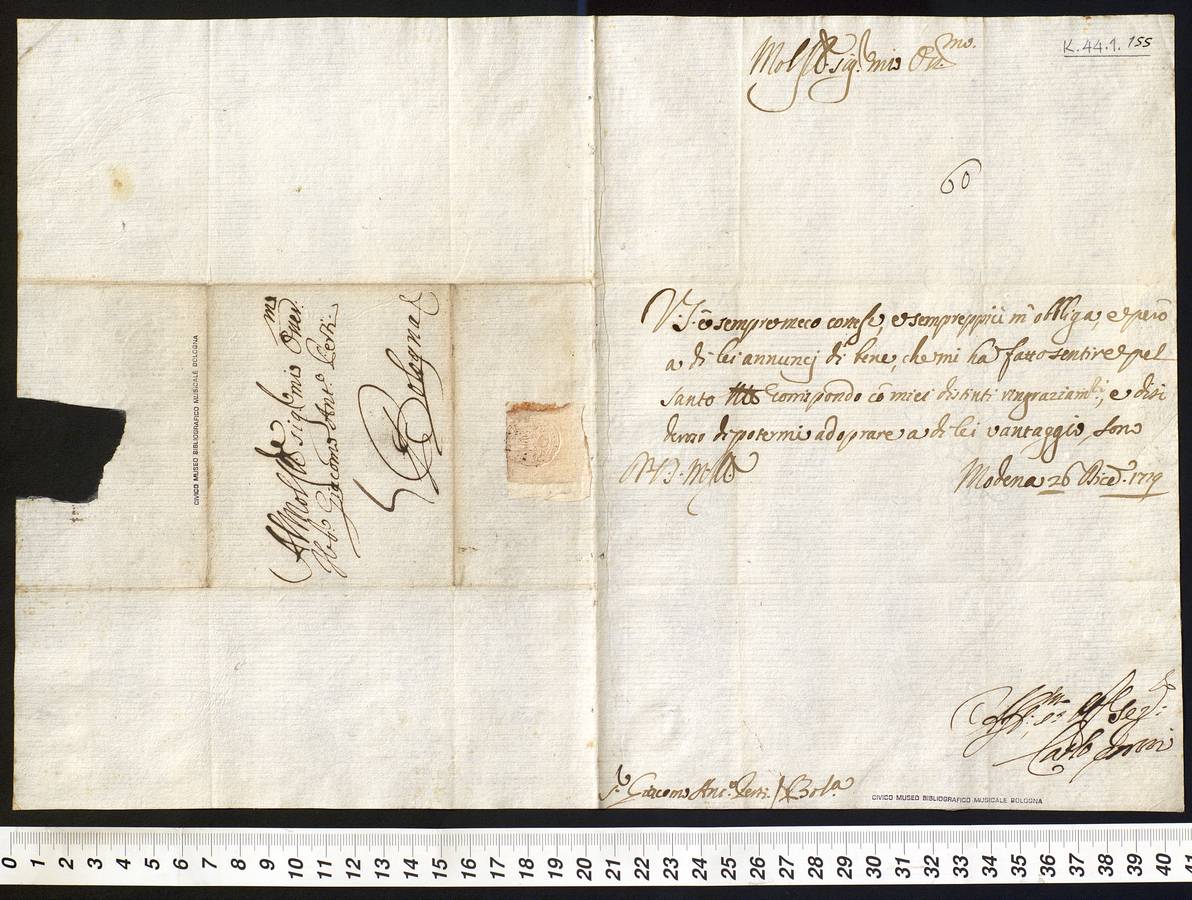 K.44.1.155
Mol Ill.re sig.r mio Oss.mo
60
V.S. è sempre meco cortese, e sempreppiù m'obbliga, e però
a di lei annunci di bene, che mi ha fatto sentire pel
santo Corrispondo cō miei distinti ringraziam.ti, e disi
deroso di potermi adoprare a di lei vantaggio, sono
D V.S. M. Ill.e
Modena 26 Dice. 1719
Aff.mo Ser.e
Carlo
S.r Giacomo Ant.o Perti. / Bol.a
CIVICO MUSEO BIBLIOGRAFICO MUSICALE BOLOGNA
Al Mol Ill.re sig.r mio Oss.mo
Giacomo Ant.o Perti.
Bologna
CIVICO MUSEO BIBLIOGRAFICO MUSICALE BOLOGNA
0 1 2 3 4 5 6 7 8 9 10 11 12 13 14 15 16 17 18 19 20 21 22 23 24 25 26 27 28 29 30 31 32 33 34 35 36 37 38 39 40 41